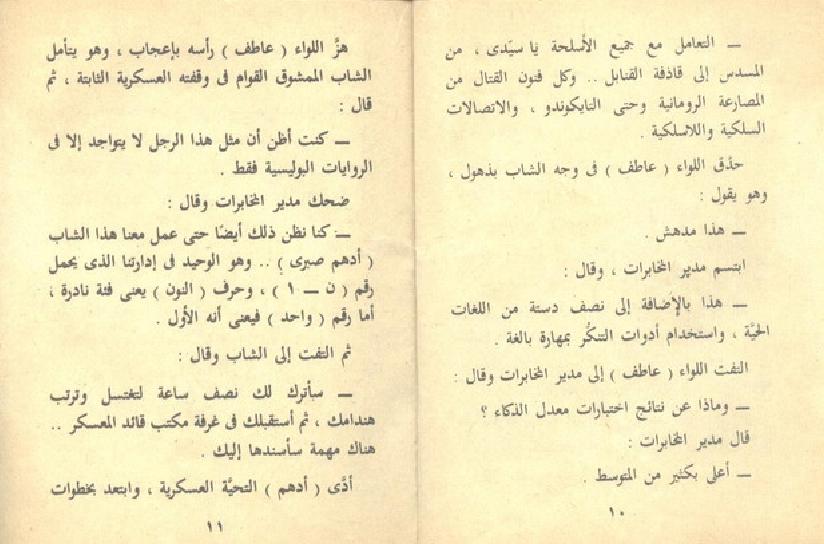 ـ التعامل مع جميع الأسلحة يا سيّدى ، من
المسدس إلى قاذفة القنابل .. وكل فنون القتال من
المصارعة الرومانية وحتى التايكوندو ، والاتصالات
السلكية واللاسلكية .
حدّق اللواء ( عاطف ) فى وجه الشاب بذهول ،
وهو يقول :
ـ هذا مدهش .
ابتسم مدير المخابرات ، وقال :
ـ هذا بالإضافة إلى نصف دستة من اللغات
الحيَّة ، واستخدام أدوات التنكُّر بمهارة بالغة .
التفت اللواء ( عاطف ) إلى مدير المخابرات وقال :
ـ وماذا عن نتائج اختبارات معدل الذكاء ؟
قال مدير المخابرات :
ـ أعلى بكثير من المتوسط .
١٠
هزَّ اللواء ( عاطف ) رأسه بإعجاب ، وهو يتأمل
الشاب الممشوق القوام فى وقفته العسكرية الثابتة ، ثم
قال :
ـ كنت أظن أن مثل هذا الرجل لا يتواجد إلا فى
الروايات البوليسية فقط .
ضحك مدير المخابرات وقال :
ـ كنا نظن ذلك أيضًا حتى عمل معنا هذا الشاب
( أدهم صبرى ) .. وهو الوحيد فى إدارتنا الذى يحمل
رقم ( ن ـ ١ ) ، وحرف ( النون ) يعنى فئة نادرة ،
أما رقم ( واحد ) فيعنى أنه الأول .
ثم التفت إلى الشاب وقال :
ـ سأترك لك نصف ساعة لتغتسل وترتب
هندامك ، ثم أستقبلك فى غرفة مكتب قائد المعسكر ..
هناك مهمة سأسندها إليك .
أدَّى ( أدهم ) التحيَّة العسكرية ، وابتعد بخطوات
١١